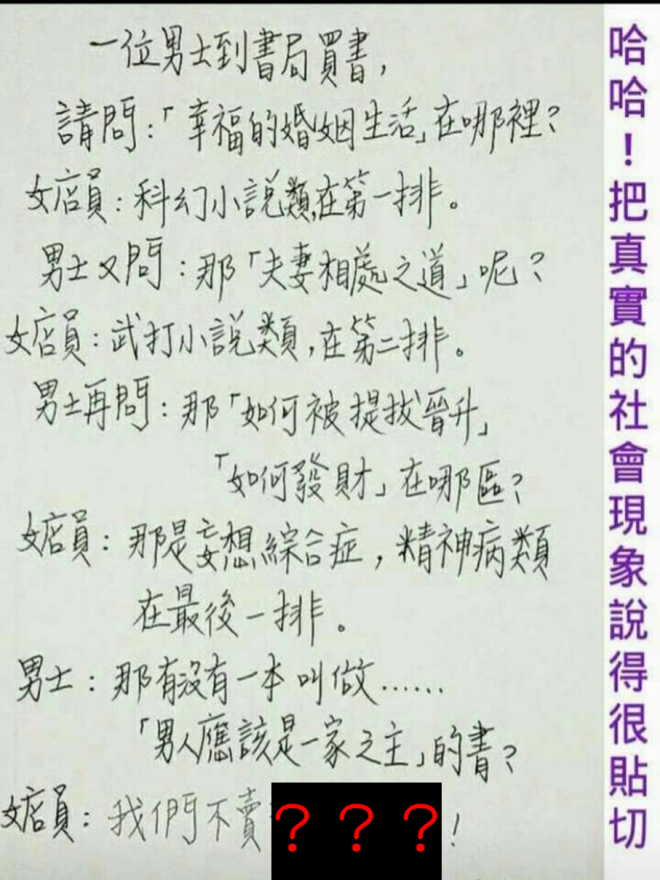 一位男士到書局買書,
請問:「幸福的婚姻生活」在哪裡?
女店員:科幻小說類,在第一排。
男士又問:那「夫妻相處之道」呢?
女店員:武打小說類,在第二排。
男士再問:那「如何被提拔晉升」
「如何發財」在哪區?
女店員:那是妄想綜合症,精神病類
在最後一排。
男士:那有沒有一本叫做......
「男人應該是一家之主」的書?
女店員:我們不賣???!
哈哈!把真實的社會現象說得很貼切